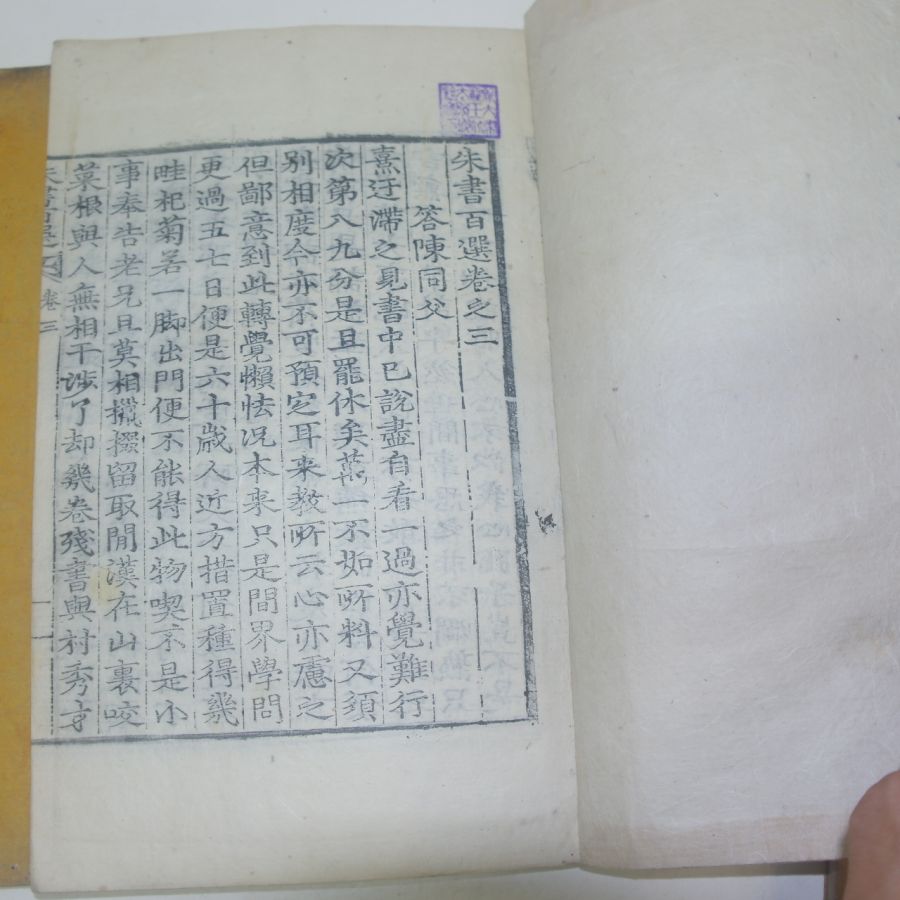 朱書百選卷之三
答陳同父
熹迂滯之見書中已說盡自看一過亦覺難行
次第八九分是且罷休矣萬一不如所料又須
別相度今亦不可預定耳來教所云心亦慮之
但鄙意到此轉覺懶怯况本來只是間界學問
更過五七日便是六十歲人近方措置種得幾
畦杞菊若一脚出門便不能得此物喫不是小
事奉告老兄且莫相攛掇留取閒漢在山裏咬
菜根與人無相干涉了却幾卷殘書與村秀才
朱書百選 卷三